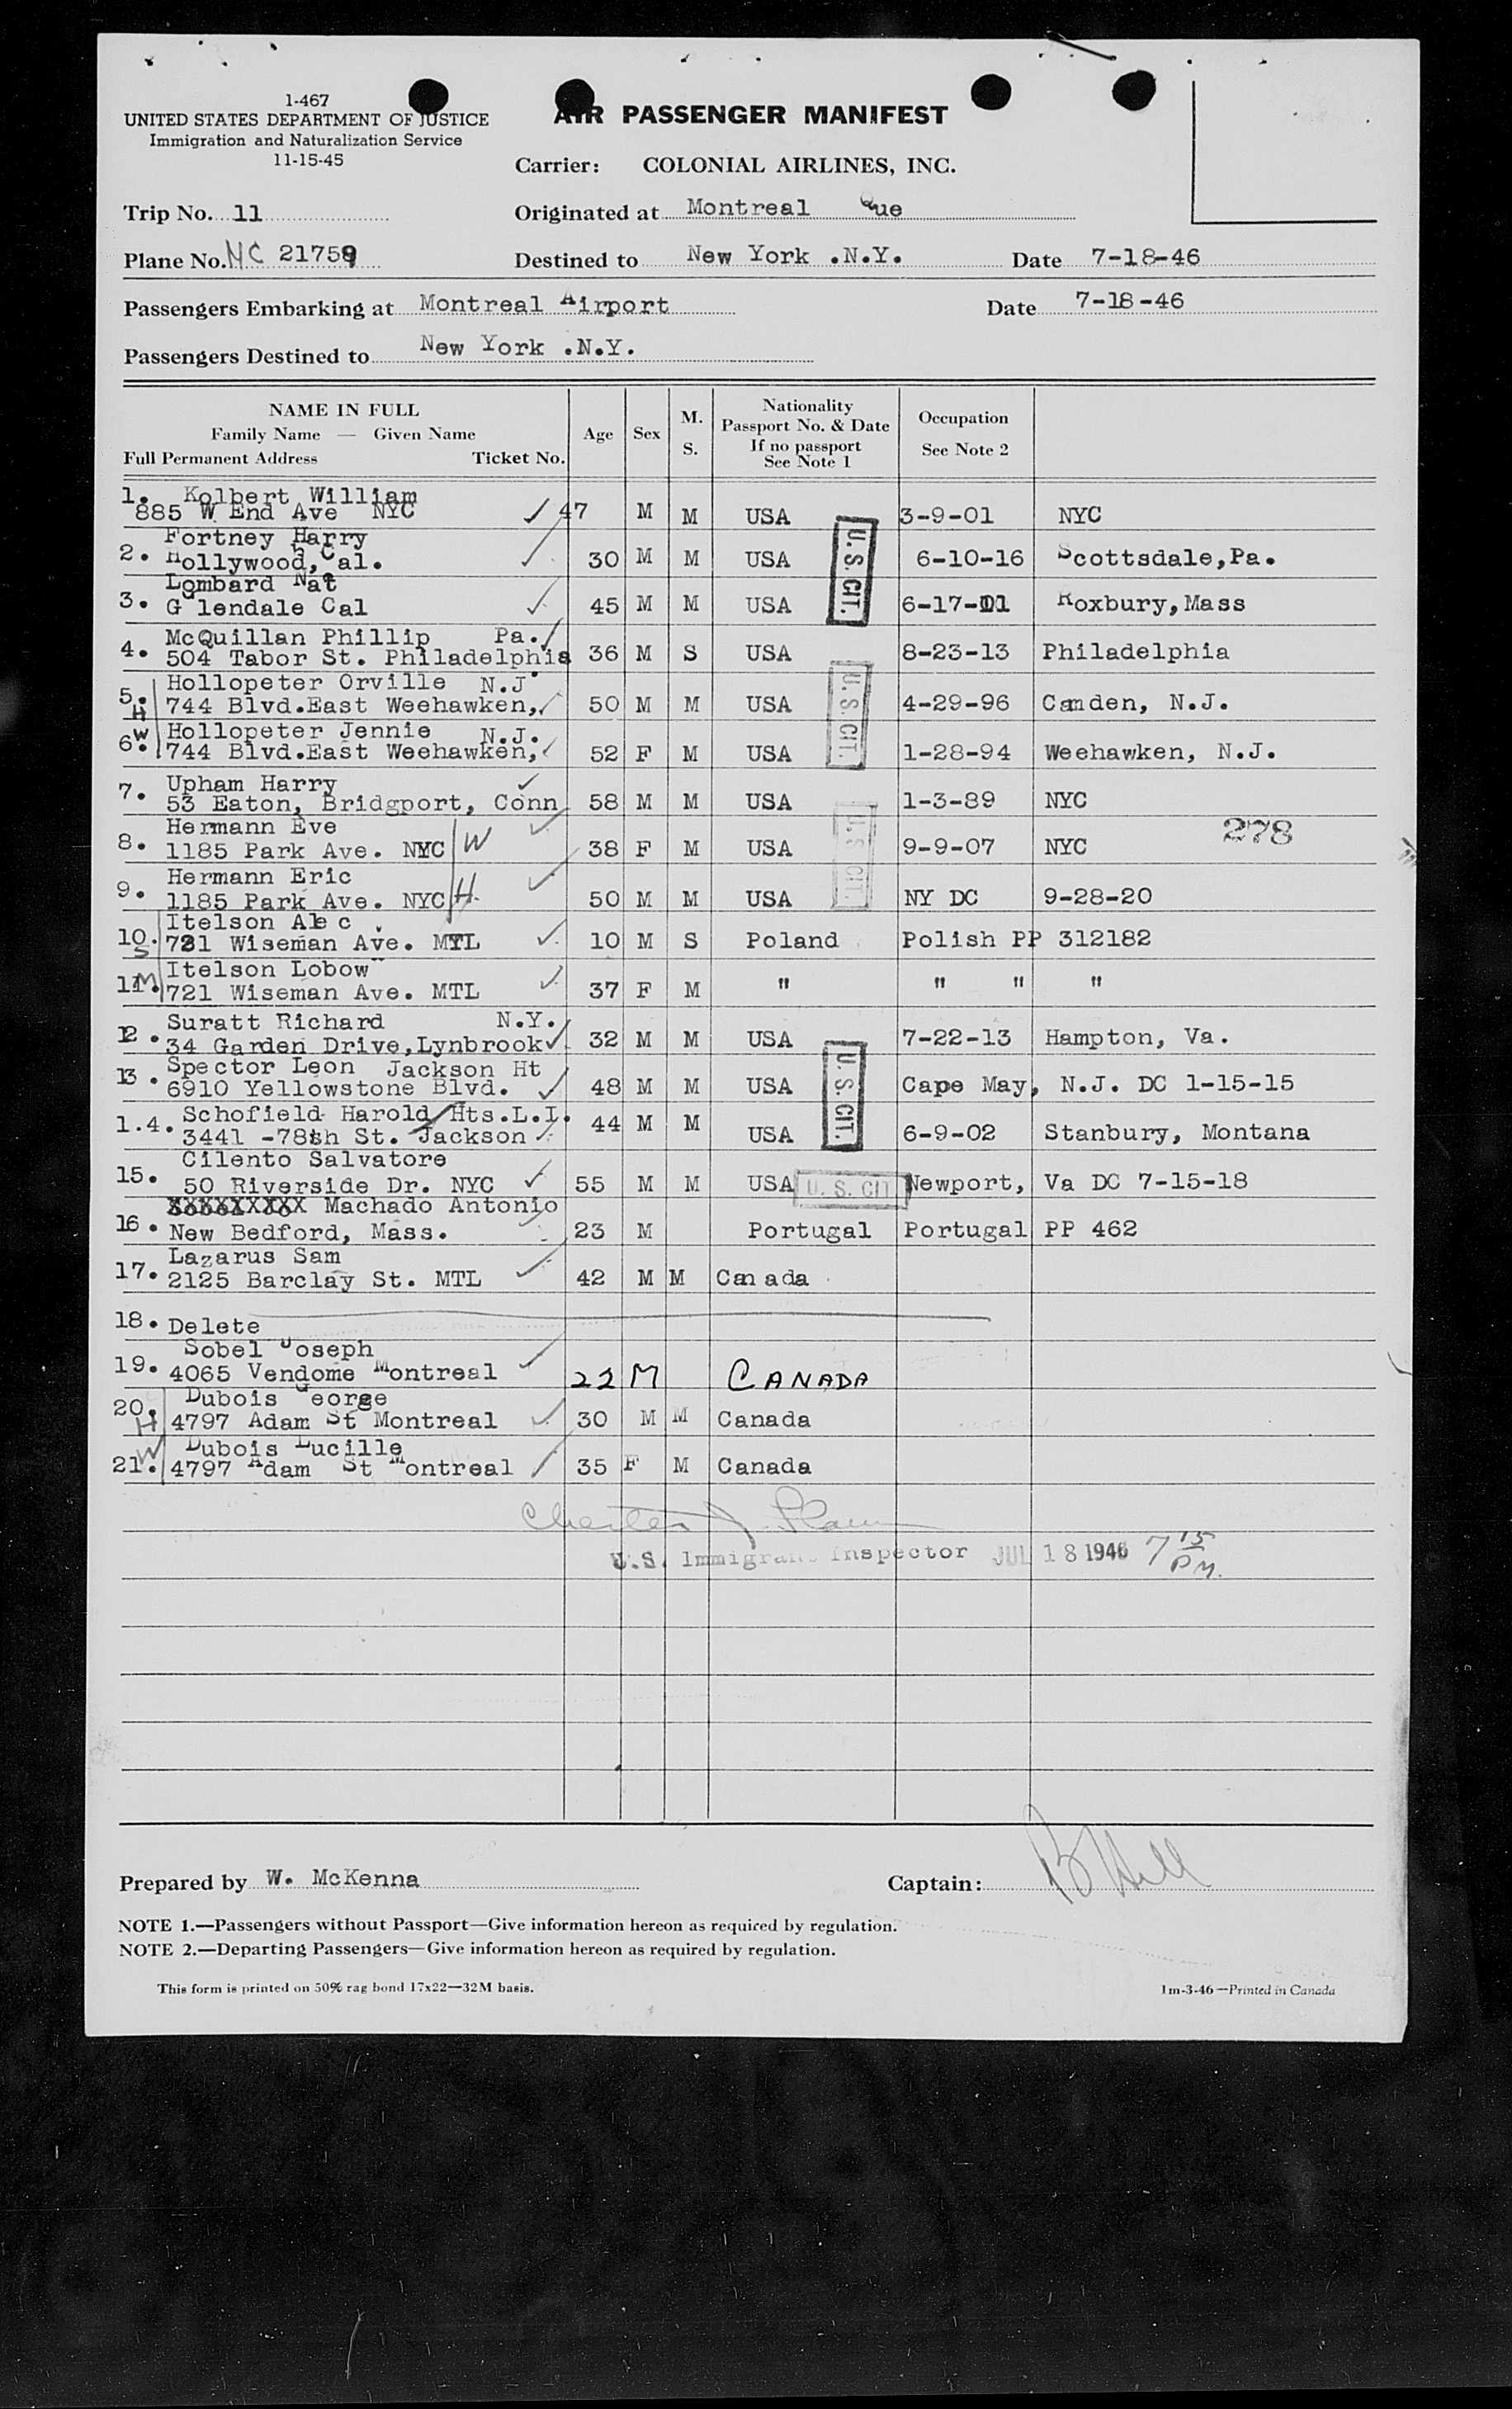 1-467
UNITED STATES DEPARTMENT OF JUSTICE
Immigration and Naturalization Service
11-15-45
AIR PASSENGER MANIFEST
Carrier: COLONIAL AIRLINES, INC.
Trip No. 11
Originated at Montreal Que
Plane No. NC 21759
Destined to New York .N.Y. Date 7-18-46
Passengers Embarking at Montreal Airport Date 7-18-46
Passengers Destined to New York .N.Y.
NAME IN FULL
Family Name — Given Name
Full Permanent Address Ticket No.
Age
Sex
M.
S.
Nationality
Passport No. & Date
If no passport
See Note 1
Occupation
See Note 2
1. Kolbert William
885 W End Ave NYC 47 M M USA 3-9-01 NYC
Fortney Harry
2. Hollywood, Cal. 30 M M USA 6-10-16 Scottsdale,Pa.
Lombard Nat
3. G lendale Cal 45 M M USA 6-17-01 Roxbury,Mass
McQuillan Phillip Pa.
4. 504 Tabor St. Philadelphia 36 M S USA 8-23-13 Philadelphia
Hollopeter Orville N.J
5. H 744 Blvd.East Weehawken, 50 M M USA 4-29-96 Camden, N.J.
Hollopeter Jennie N.J.
6. W 744 Blvd.East Weehawken, 52 F M USA 1-28-94 Weehawken, N.J.
Upham Harry
7. 53 Eaton, Bridgport, Conn 58 M M USA 1-3-89 NYC
Hermann Eve
8. 1185 Park Ave. NYC W 38 F M USA 9-9-07 NYC
278
Hermann Eric
9. 1185 Park Ave. NYC H 50 M M USA NY DC 9-28-20
Itelson Alec
10. S 721 Wiseman Ave. MTL 10 M S Poland Polish PP 312182
Itelson Lobow
11. M 721 Wiseman Ave. MTL 37 F M " " " "
Suratt Richard N.Y.
12. 34 Garden Drive,Lynbrook 32 M M USA 7-22-13 Hampton, Va.
Spector Leon Jackson Ht
13. 6910 Yellowstone Blvd. 48 M M USA Cape May, N.J. DC 1-15-15
Schofield Harold Hts.L.I.
1.4. 3441 -78th St. Jackson 44 M M USA 6-9-02 Stanbury, Montana
Cilento Salvatore
15. 50 Riverside Dr. NYC 55 M M USA Newport, Va DC 7-15-18
XXXXXXXXX Machado Antonio
16. New Bedford, Mass. 23 M Portugal Portugal PP 462
Lazarus Sam
17. 2125 Barclay St. MTL 42 M M Canada
18. Delete
Sobel Joseph
19. 4065 Vendome Montreal 22 M CANADA
Dubois George
20. H 4797 Adam St Montreal 30 M M Canada
Dubois Lucille
21. W 4797 Adam St Montreal 35 F M Canada
U.S. CIT.
U.S. CIT.
U.S. CIT.
U.S. CIT.
U.S. CIT
U.S. Immigrant Inspector JUL 18 1946 7 15 PM.
Prepared by W. McKenna
Captain: B Hill
NOTE 1.—Passengers without Passport—Give information hereon as required by regulation.
NOTE 2.—Departing Passengers—Give information hereon as required by regulation.
This form is printed on 50% rag bond 17x22—32M basis.
1m-3-46—Printed in Canada